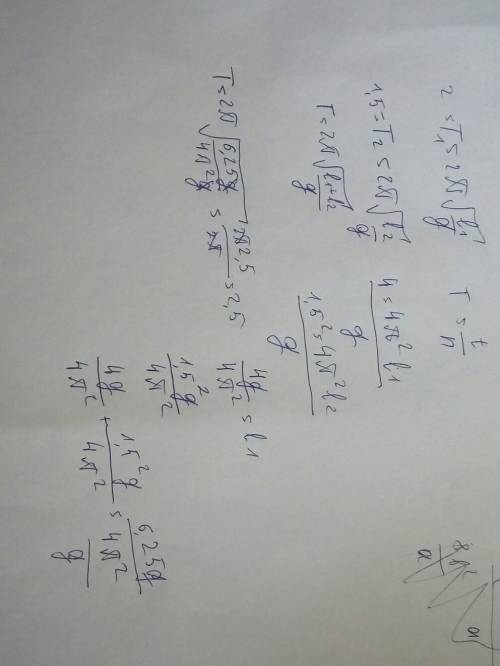 2 = T₁ = 2π√(l₁/g)   T = t/n
1,5 = T₂ = 2π√(l₂/g)   4 = 4π² l₁/g
T = 2π√((l₁+l₂)/g)   1,5² = 4π² l₂/g
T = 2π√(6,25g/4π²g) = π2,5/π = 2,5
4g/4π² = l₁
1,5²g/4π²
4g/4π² + 1,5²g/4π² = 6,25g/4π²/g